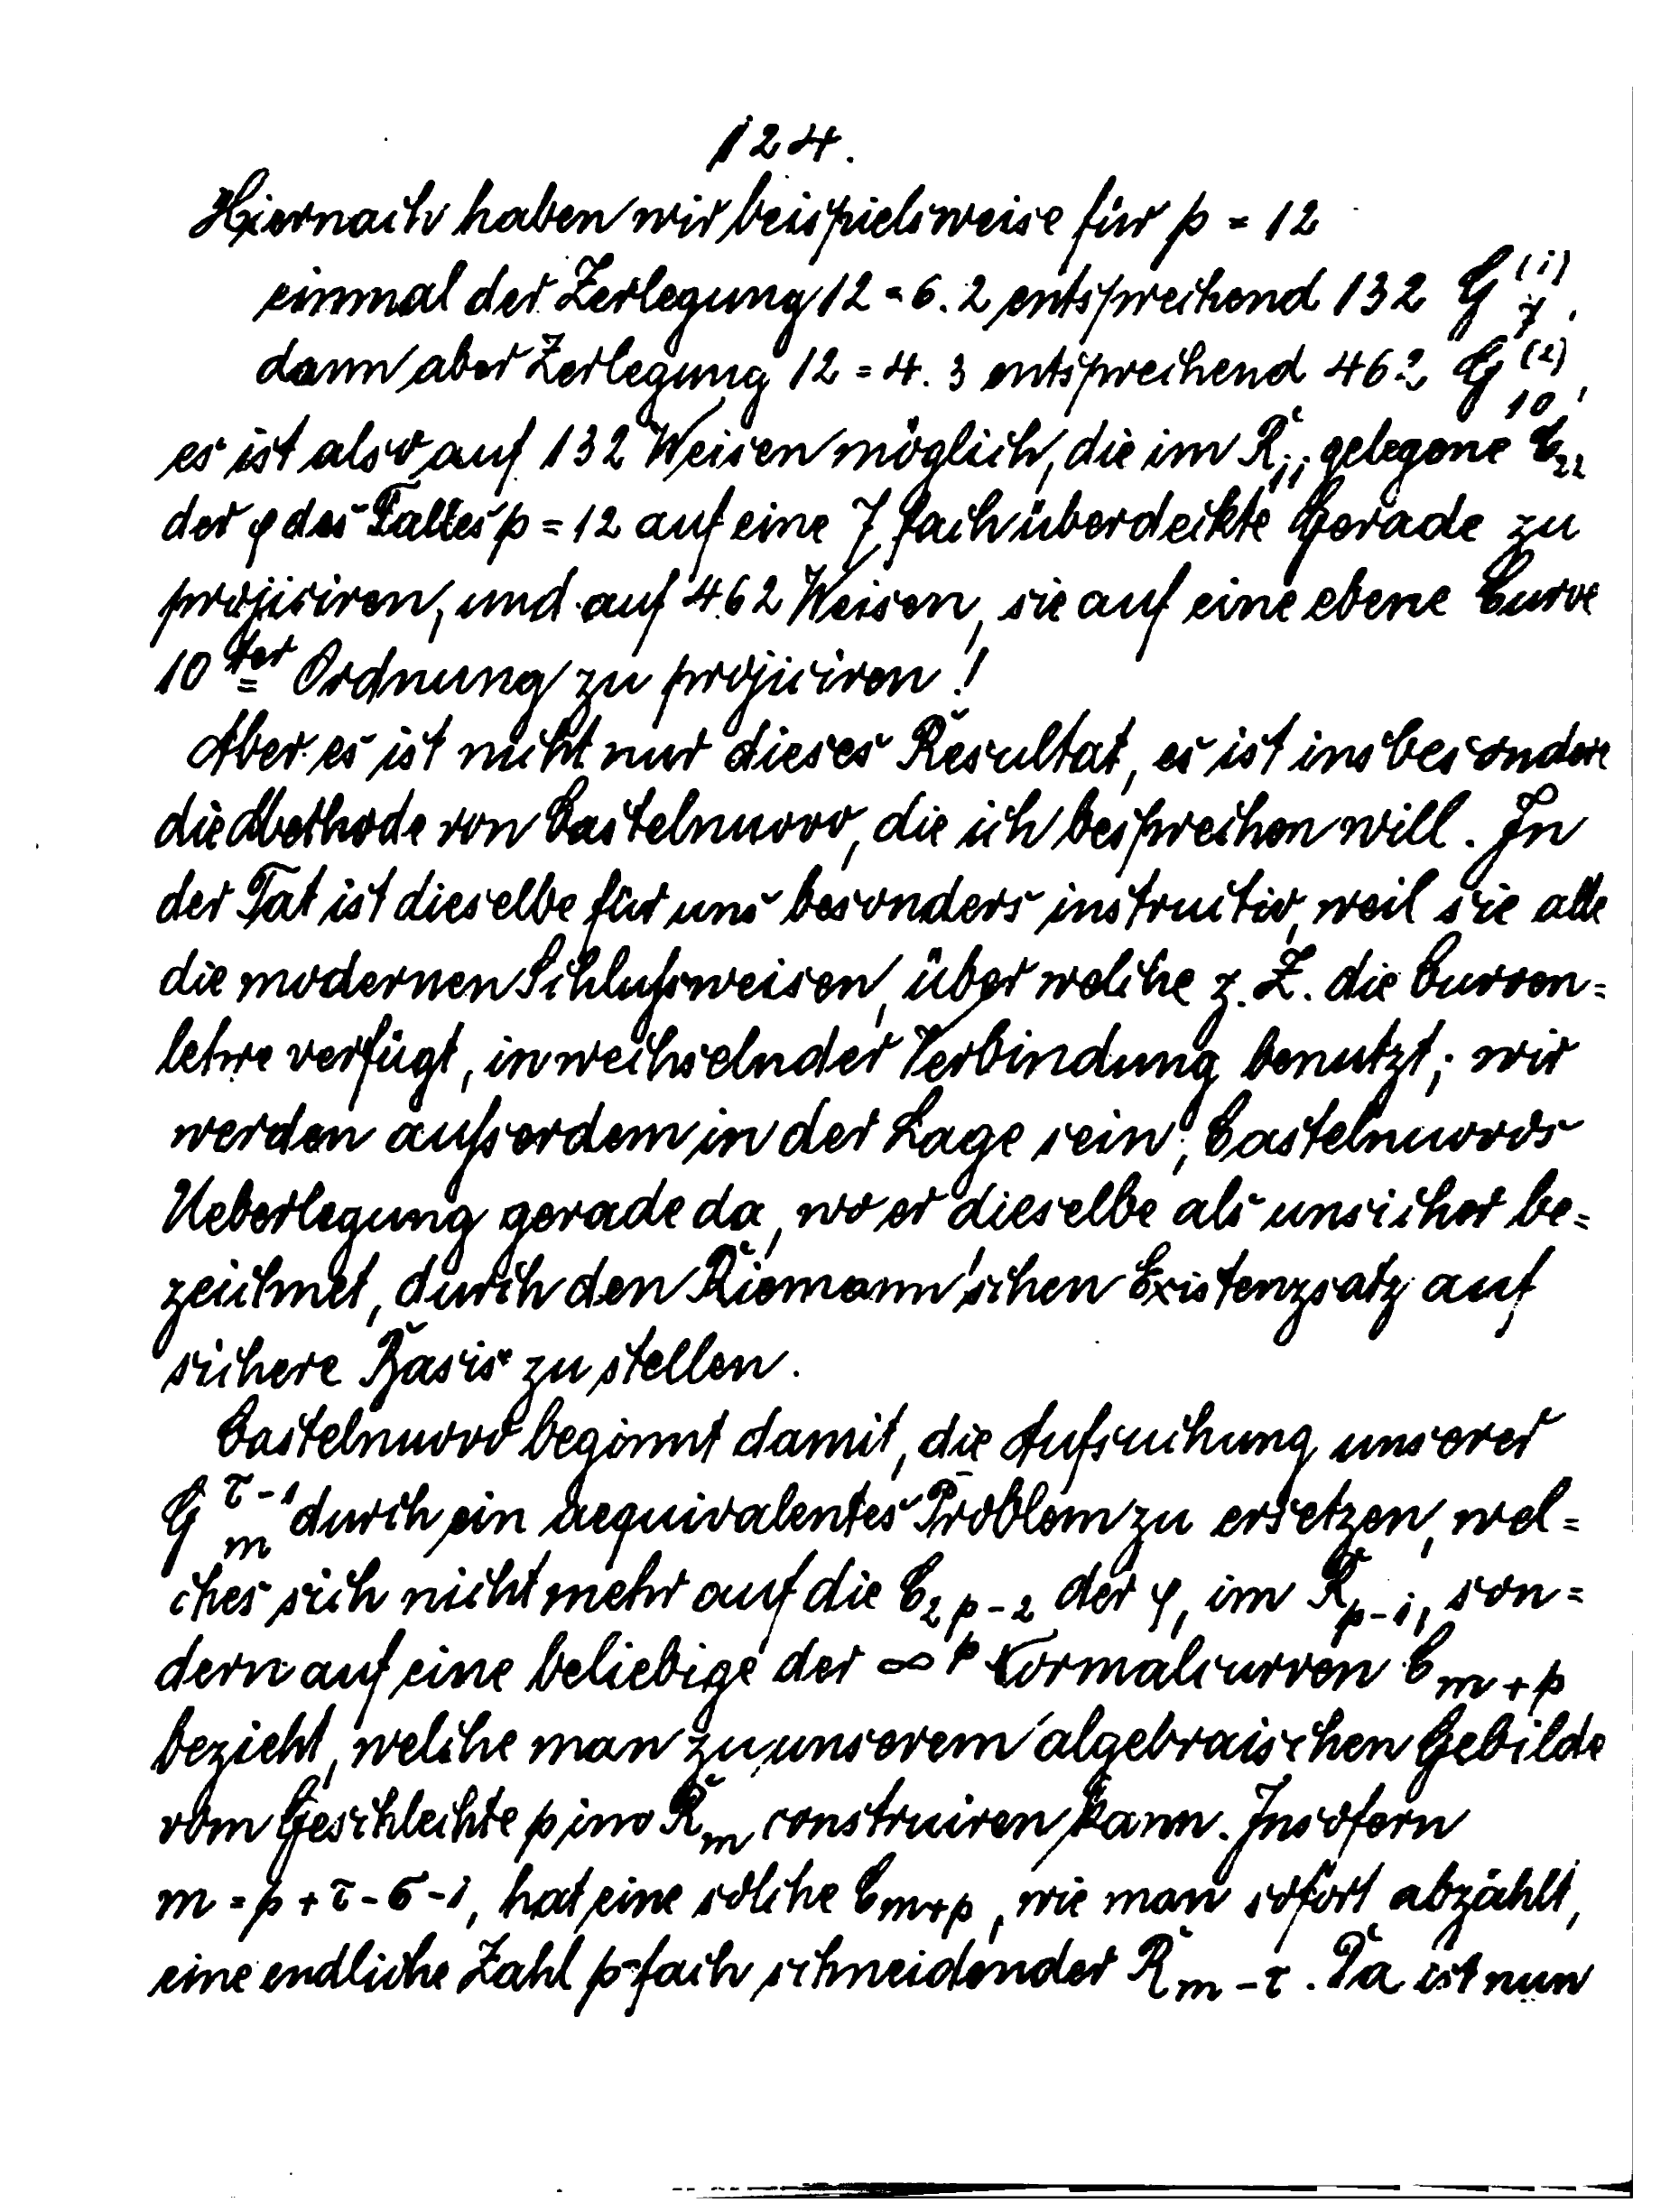 124.
Hiernach haben wir beispielsweise für p = 12
einmal der Zerlegung 12 = 6.2 entsprechend 132 G_7^{(1)},
dann aber Zerlegung 12 = 4.3 entsprechend 462 G_{10}^{(2)},
es ist also auf 132 Weisen möglich, die im R_{11} gelegene C_{22}
der φ des Falles p = 12 auf eine 7 fach überdeckte Gerade zu
projiciren, und auf 462 Weisen, sie auf eine ebene Curve
10ter Ordnung zu projiciren!
Aber es ist nicht nur dieses Resultat, es ist insbesondere
die Methode von Castelnuovo, die ich besprechen will. In
der Tat ist dieselbe für uns besonders instructiv, weil sie alle
die modernen Schlußweisen, über welche z. Z. die Curven=
lehre verfügt, in wechselnder Verbindung benutzt; wir
werden außerdem in der Lage sein, Castelnuovos
Ueberlegung gerade da, wo er dieselbe als unsicher be=
zeichnet, durch den Riemann'schen Existenzsatz auf
sichere Basis zu stellen.
Castelnuovo beginnt damit, die Aufsuchung unserer
G_m^{τ-1} durch ein aequivalentes Problem zu ersetzen, wel=
ches sich nicht mehr auf die C_{2p-2} der φ, im R_{p-1}, son=
dern auf eine beliebige der ∞^p Normalcurven C_{m+p}
bezieht, welche man zu unserem algebraischen Gebilde
vom Geschlechte p im R_m construiren kann. Insofern
m = p + τ - σ - 1, hat eine solche C_{m+p}, wie man sofort abzählt,
eine endliche Zahl p-fach schneidender R_{m-τ}. Da ist nun